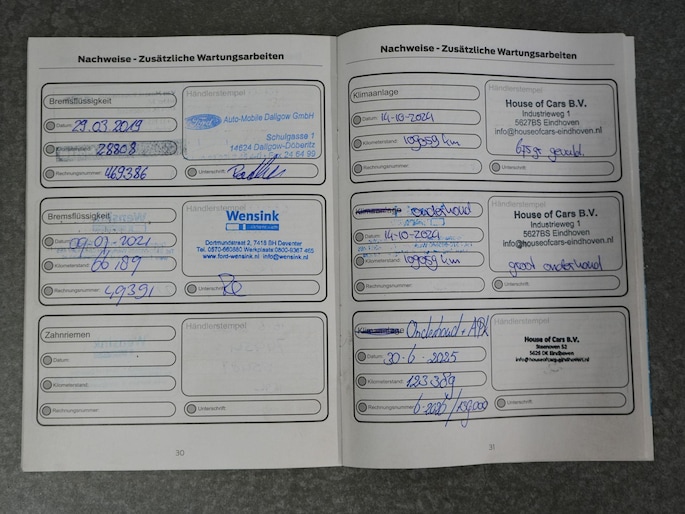 Nachweise - Zusätzliche Wartungsarbeiten
Bremsflüssigkeit
Datum: 29.03.2019
Kilometerstand: 28808
Rechnungsnummer: 469386
Händlerstempel
Ford
Auto-Mobile Dallgow GmbH
Schulgasse 1
14624 Dallgow-Döberitz
24 64 99
Unterschrift:
Bremsflüssigkeit
Datum:
Kilometerstand: 66189
Rechnungsnummer: 49391
Händlerstempel
Wensink
Dortmundstraat 2, 7418 BH Deventer
Tel. 0570-660880 Werkplaats 0800-9367 465
www.ford-wensink.nl info@wensink.nl
Unterschrift:
Zahnriemen
Datum:
Kilometerstand:
Rechnungsnummer:
Händlerstempel
Unterschrift:
30
Nachweise - Zusätzliche Wartungsarbeiten
Klimaanlage
Datum: 14-10-2024
Kilometerstand: 109059 km
Rechnungsnummer:
Händlerstempel
House of Cars B.V.
Industrieweg 1
5627BS Eindhoven
info@houseofcars-eindhoven.nl
675 gr gevuld.
Unterschrift:
Klimaanlage onderhoud
Datum: 14-10-2024
Kilometerstand: 109059 km
Rechnungsnummer:
Händlerstempel
House of Cars B.V.
Industrieweg 1
5627BS Eindhoven
info@houseofcars-eindhoven.nl
groot onderhoud
Unterschrift:
Klimaanlage Onderhoud + APK
Datum: 30-6-2025
Kilometerstand: 123389
Rechnungsnummer: 6-2026/139000
Händlerstempel
House of Cars B.V.
Steenoven 52
5626 DK Eindhoven
Unterschrift:
31